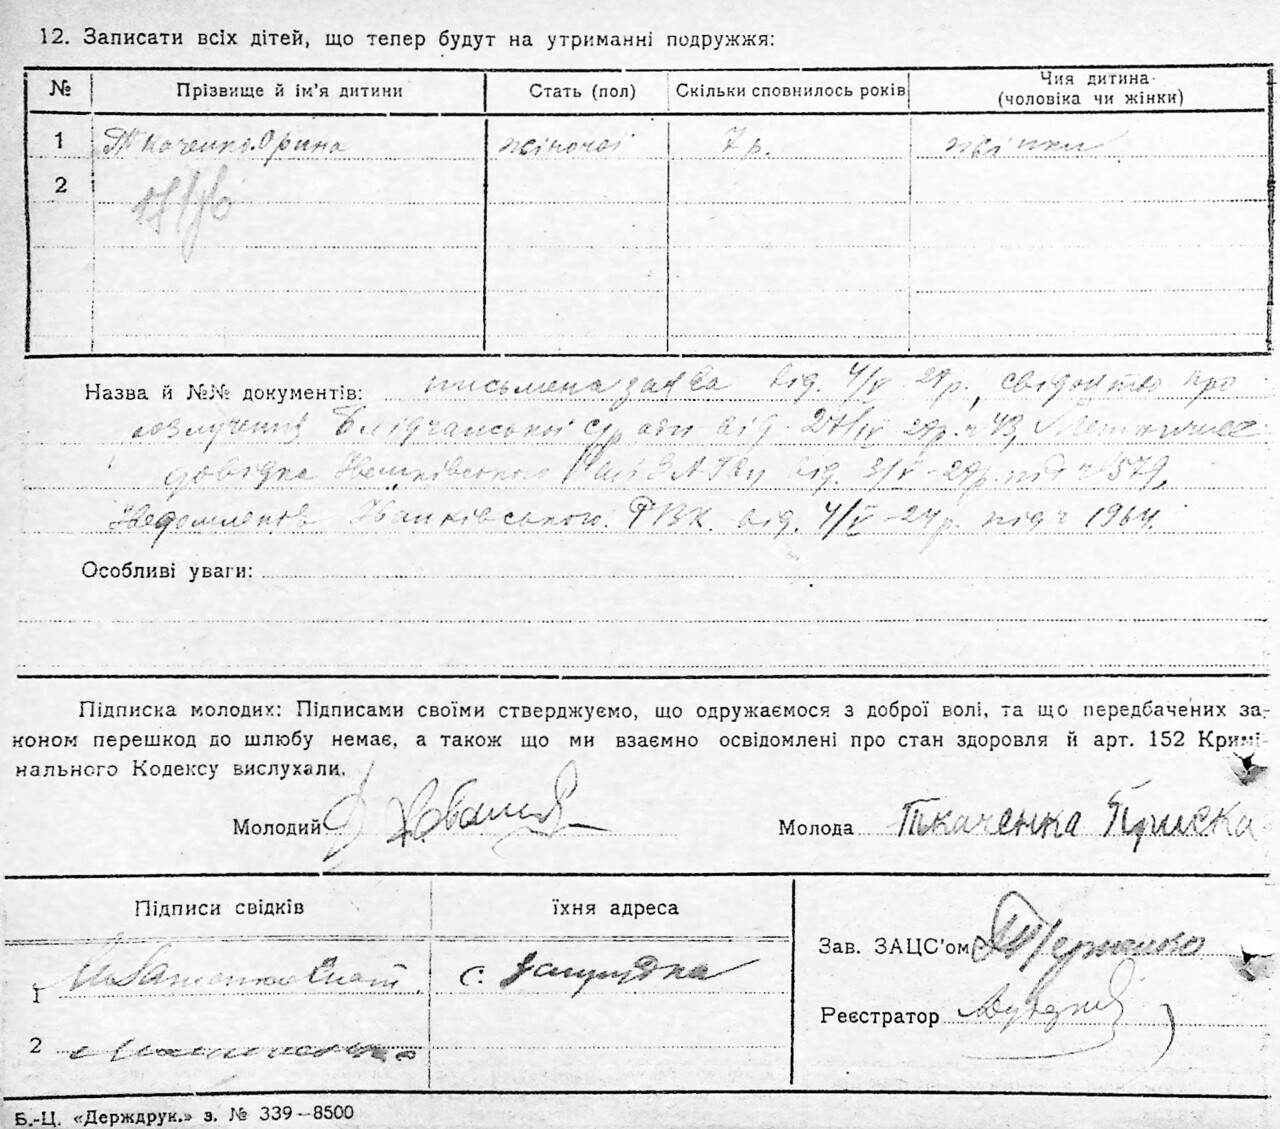 12. Записати всіх дітей, що тепер будут на утриманні подружжя:
№ Прізвище й ім'я дитини Стать (пол) Скільки сповнилось років Чия дитина (чоловіка чи жінки)
1 Ткаченко Орина жіночої 7 р. жінки
2
Назва й №№ документів: письмена заява від. 4/V 29 р., свідоцтво про
розлучення від 27/IV 29р. ч 43,
довідка від. 3/V-29р. під ч 579,
Іванківського РВК. від. 4/V-29 р. під ч 1964.
Особливі уваги:
Підписка молодих: Підписами своїми стверджуємо, що одружаємося з доброї волі, та що передбачених за-
коном перешкод до шлюбу немає, а також що ми взаємно освідомлені про стан здоровля й арт. 152 Кримі-
нального Кодексу вислухали.
Молодий
Молода Ткаченка Приска
Підписи свідків їхня адреса
Зав. ЗАЦС'ом
1 с.
Реєстратор
2
Б.-Ц. «Держдрук.» з. № 339—8500